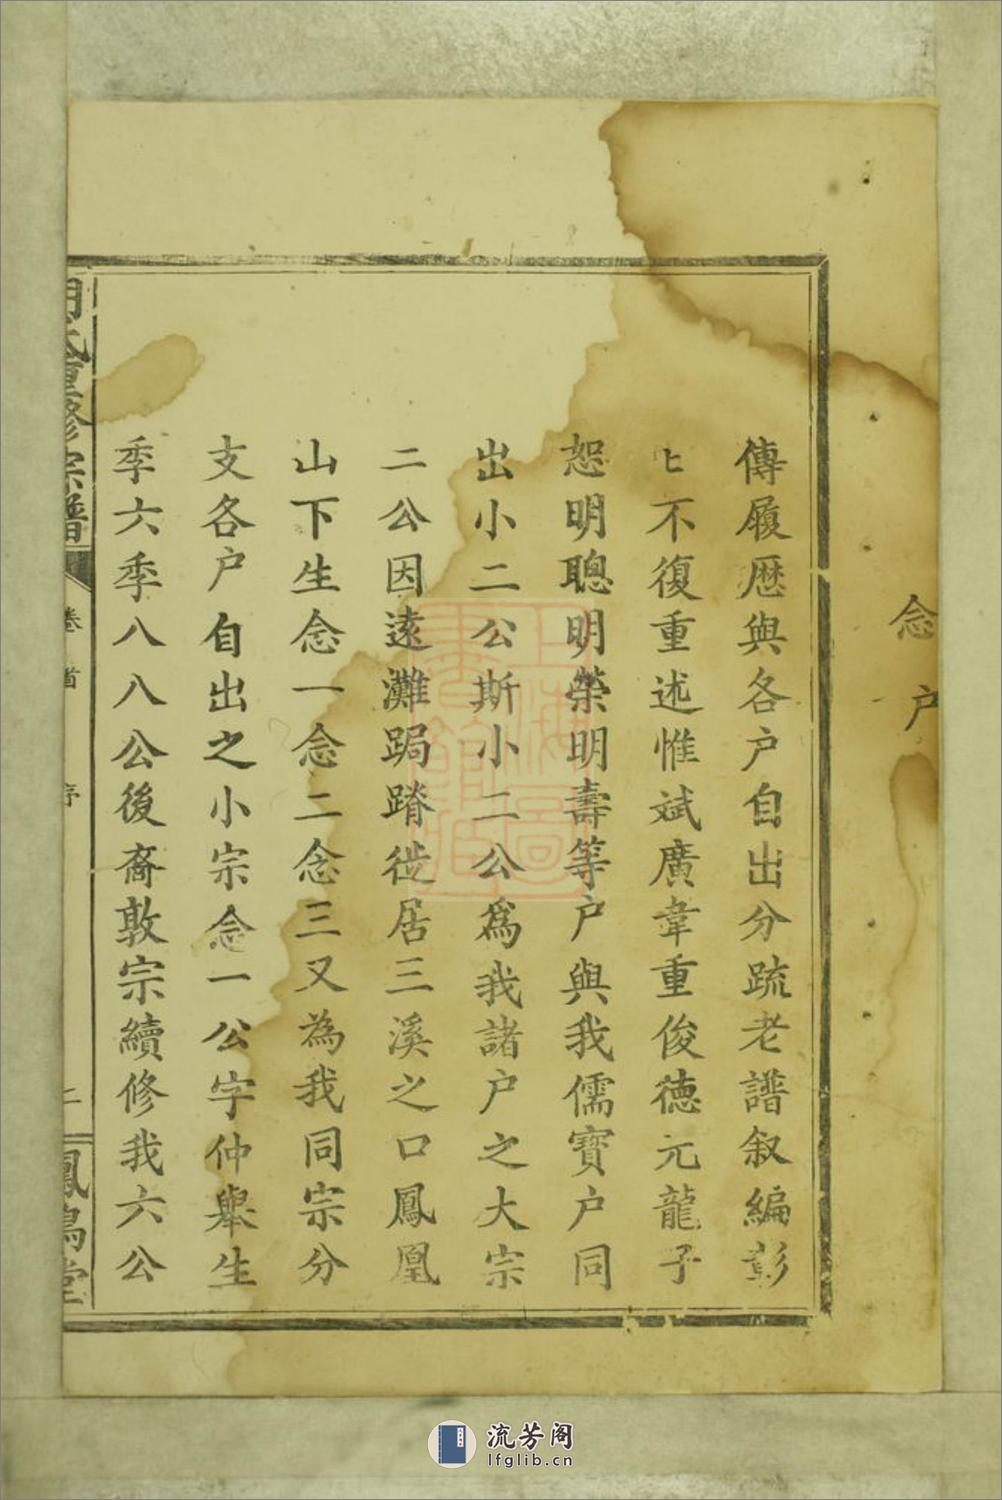 念户
傳履歷與各户自出分䟽老譜叙編彰
匕不復重述惟斌廣韋重俊德元龍子
恕明聰明榮明壽等户與我儒寳户同
出小二公斯小二公爲我諸户之大宗
二公因遠灘跼蹐徙居三溪之口鳳凰
山下生念一念二念三又為我同宗分
支各户自出之小宗念一公字仲舉生
季六季八八公後裔敦宗續修我六公
修宗譜
卷首
序
二
鳳鳴堂
上海圖書館藏
流芳阁
lfglib.cn